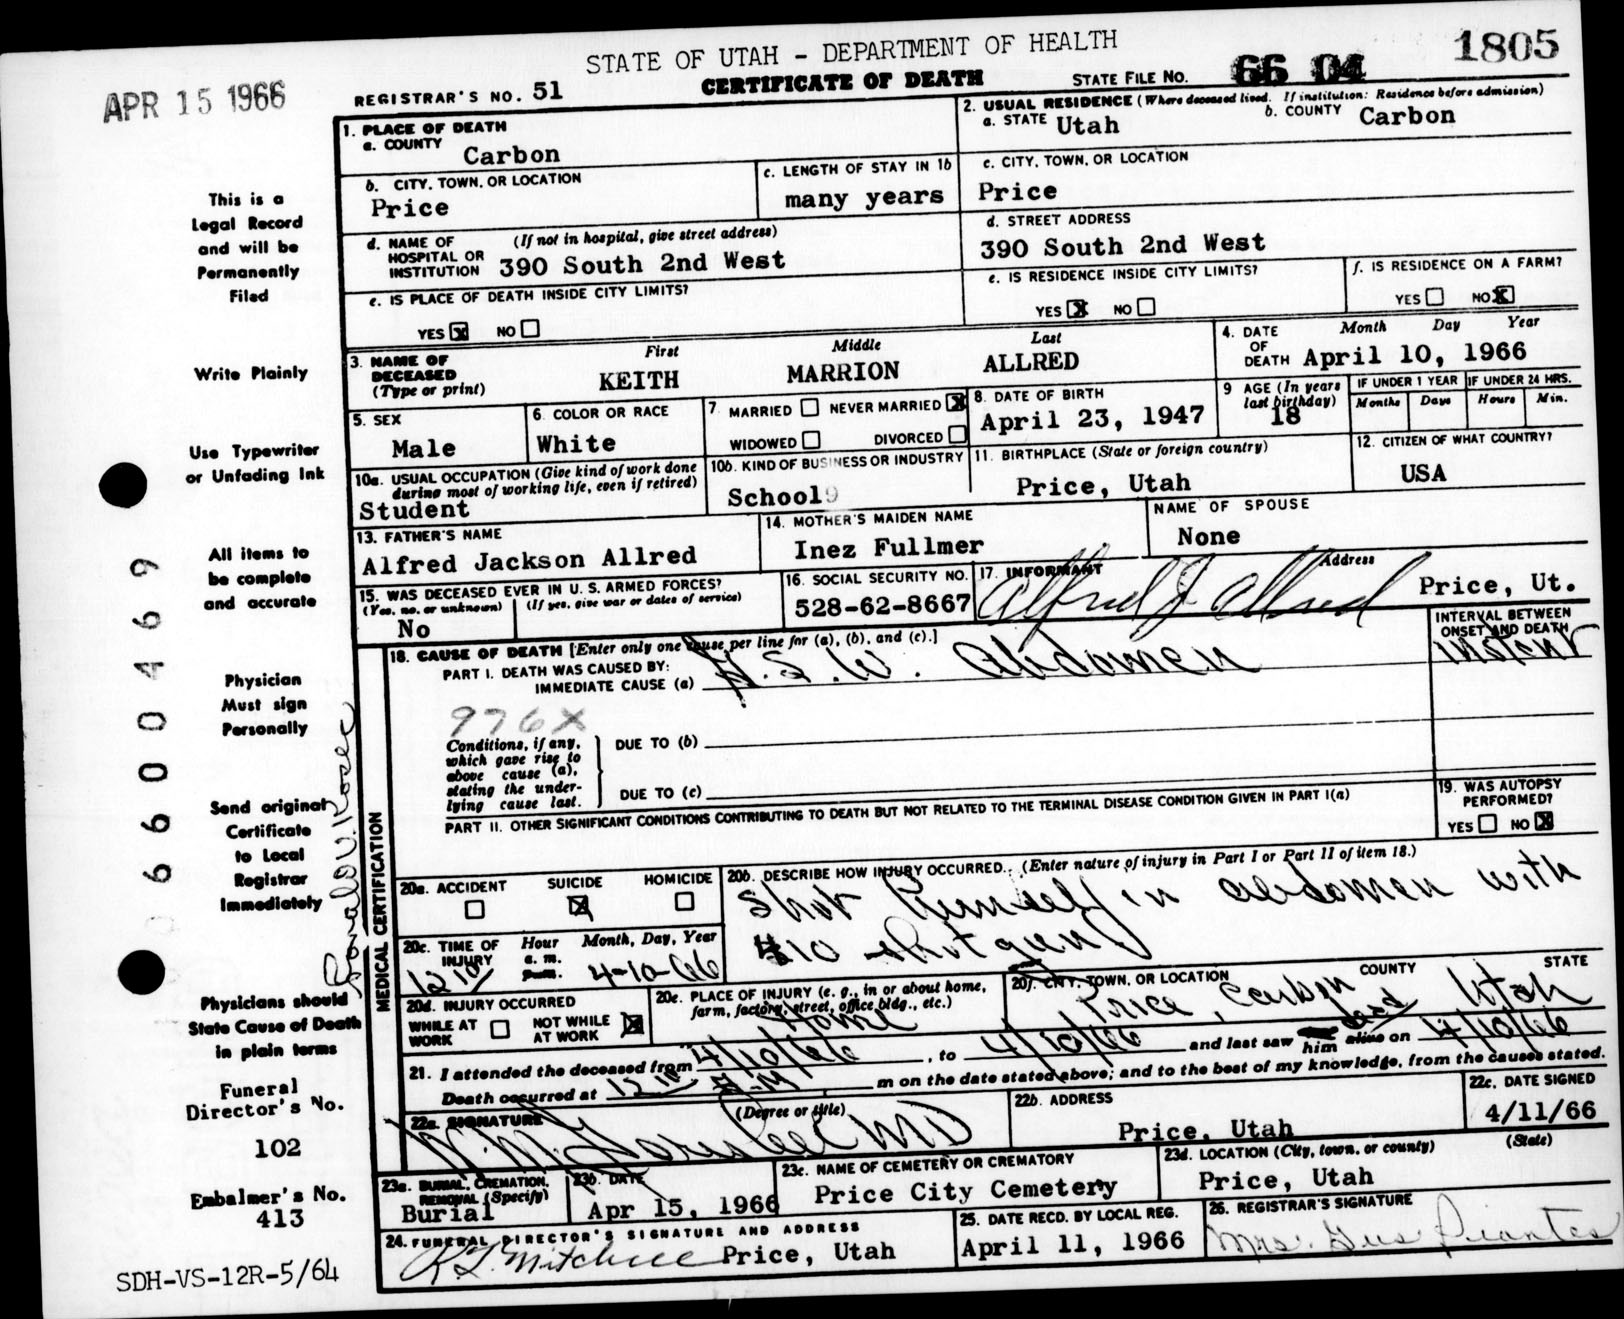 STATE OF UTAH - DEPARTMENT OF HEALTH
1805
APR 15 1966
REGISTRAR'S NO. 51
CERTIFICATE OF DEATH
STATE FILE NO. 66 04
1. PLACE OF DEATH
a. COUNTY Carbon
2. USUAL RESIDENCE (Where deceased lived. If institution: Residence before admission)
a. STATE Utah
b. COUNTY Carbon
b. CITY, TOWN, OR LOCATION
Price
c. LENGTH OF STAY IN 1b
many years
c. CITY, TOWN, OR LOCATION
Price
d. NAME OF HOSPITAL OR INSTITUTION (If not in hospital, give street address)
390 South 2nd West
d. STREET ADDRESS
390 South 2nd West
e. IS PLACE OF DEATH INSIDE CITY LIMITS?
YES X NO
e. IS RESIDENCE INSIDE CITY LIMITS?
YES X NO
f. IS RESIDENCE ON A FARM?
YES NO X
3. NAME OF DECEASED (Type or print)
First Middle Last
KEITH MARRION ALLRED
4. DATE OF DEATH Month Day Year
April 10, 1966
5. SEX
Male
6. COLOR OR RACE
White
7. MARRIED NEVER MARRIED X
WIDOWED DIVORCED
8. DATE OF BIRTH
April 23, 1947
9 AGE (In years last birthday)
18
IF UNDER 1 YEAR IF UNDER 24 HRS.
Months Days Hours Min.
10a. USUAL OCCUPATION (Give kind of work done during most of working life, even if retired)
Student
10b. KIND OF BUSINESS OR INDUSTRY
School 9
11. BIRTHPLACE (State or foreign country)
Price, Utah
12. CITIZEN OF WHAT COUNTRY?
USA
13. FATHER'S NAME
Alfred Jackson Allred
14. MOTHER'S MAIDEN NAME
Inez Fullmer
NAME OF SPOUSE
None
15. WAS DECEASED EVER IN U. S. ARMED FORCES?
(Yes, no, or unknown) (If yes, give war or dates of service)
No
16. SOCIAL SECURITY NO.
528-62-8667
17. INFORMANT Address
Alfred J. Allred Price, Ut.
18. CAUSE OF DEATH [Enter only one cause per line for (a), (b), and (c).]
INTERVAL BETWEEN ONSET AND DEATH
PART I. DEATH WAS CAUSED BY:
IMMEDIATE CAUSE (a) G.S.W. Abdomen
Instant
976X
Conditions, if any, which gave rise to above cause (a), stating the underlying cause last.
DUE TO (b)
DUE TO (c)
PART II. OTHER SIGNIFICANT CONDITIONS CONTRIBUTING TO DEATH BUT NOT RELATED TO THE TERMINAL DISEASE CONDITION GIVEN IN PART I(a)
19. WAS AUTOPSY PERFORMED?
YES NO X
MEDICAL CERTIFICATION
20a. ACCIDENT SUICIDE X HOMICIDE
20b. DESCRIBE HOW INJURY OCCURRED. (Enter nature of injury in Part I or Part II of item 18.)
Shot himself in abdomen with
410 shotgun
20c. TIME OF INJURY Hour a. m. p. m. Month, Day, Year
12 10 4-10-66
20d. INJURY OCCURRED
WHILE AT WORK NOT WHILE AT WORK X
20e. PLACE OF INJURY (e. g., in or about home, farm, factory, street, office bldg., etc.)
Home
20f. CITY, TOWN, OR LOCATION COUNTY STATE
Price, Carbon Utah
21. I attended the deceased from 4/10/66, to 4/10/66 and last saw him dead alive on 4/10/66
Death occurred at 12 10 m on the date stated above; and to the best of my knowledge, from the causes stated.
22a. SIGNATURE (Degree or title)
MD
22b. ADDRESS
Price, Utah
22c. DATE SIGNED
4/11/66
23a. BURIAL, CREMATION, REMOVAL (Specify)
Burial
23b. DATE
Apr 15, 1966
23c. NAME OF CEMETERY OR CREMATORY
Price City Cemetery
23d. LOCATION (City, town, or county) (State)
Price, Utah
24. FUNERAL DIRECTOR'S SIGNATURE AND ADDRESS
Mitchell Price, Utah
25. DATE RECD. BY LOCAL REG.
April 11, 1966
26. REGISTRAR'S SIGNATURE
Mrs. Gus
This is a
Legal Record
and will be
Permanently
Filed
Write Plainly
Use Typewriter
or Unfading Ink
All items to
be complete
and accurate
Physician
Must sign
Personally
Send original
Certificate
to Local
Registrar
Immediately
Physicians should
State Cause of Death
in plain terms
Funeral
Director's No.
102
Embalmer's No.
413
SDH-VS-12R-5/64
66 00469